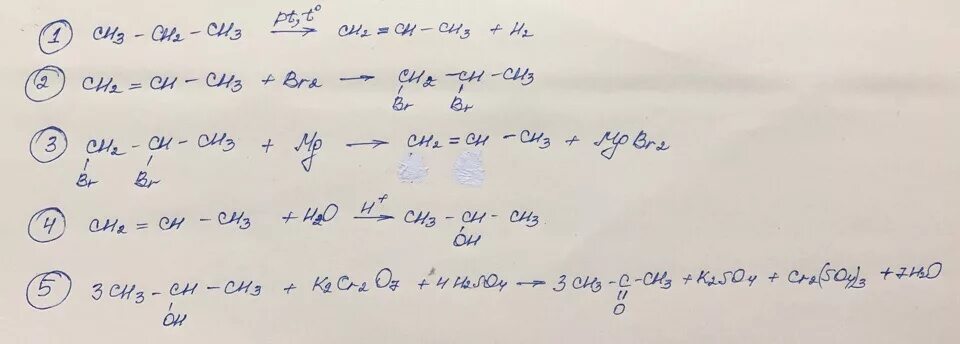 1 CH3 - CH2 - CH3 pt, t° → CH2 = CH - CH3 + H2
2 CH2 = CH - CH3 + Br2 → CH2 - CH - CH3
Br Br
3 CH2 - CH - CH3 + Mg → CH2 = CH - CH3 + MgBr2
Br Br
4 CH2 = CH - CH3 + H2O H+ → CH3 - CH - CH3
OH
5 3CH3 - CH - CH3 + K2Cr2O7 + 4H2SO4 → 3CH3 - C - CH3 + K2SO4 + Cr2(SO4)3 + 7H2O
OH O